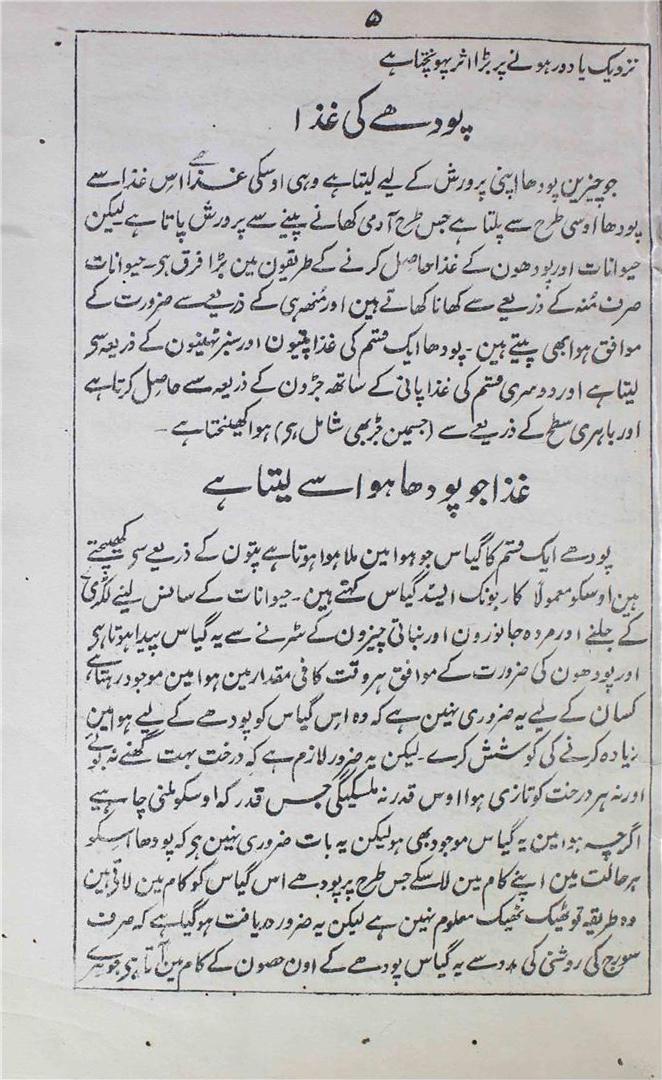 ۵
نزدیک یا دور ہونے پر بڑا اثر پہونچتا ہے
پودھے کی غذا
جو چیزین پودھا اپنی پرورش کے لیے لیتا ہے وہی اوسکی غذا ہے اس غذا سے
پودھا اوسی طرح سے پلتا ہے جس طرح آدمی کھانے پینے سے پرورش پاتا ہے لیکن
حیوانات اور پودھون کے غذا حاصل کرنے کے طریقون مین بڑا فرق ہی۔ حیوانات
صرف مُنہ کے ذریعے سے کھانا کھاتے ہین اور مُنھ ہی کے ذریعے سے ضرورت کے
موافق ہوا بھی پیتے ہین۔ پودھا ایک قسم کی غذا پتیون اور سبز ٹہنیون کے ذریعہ سی
لیتا ہے اور دوسری قسم کی غذا پانی کے ساتھ جڑون کے ذریعہ سے حاصل کرتا ہے
اور باہری سطح کے ذریعے سے (جسمین جڑ بھی شامل ہی) ہوا کھینچتا ہے۔
غذا جو پودھا ہوا سے لیتا ہے
پودھے ایک قسم کا گیاس جو ہوا مین ملا ہوا ہوتا ہے پتون کے ذریعے سی کھینچتے
ہین اوسکو معمولاً کاربونک ایسڈ گیاس کہتے ہین۔ حیوانات کے سانس لینے لکڑی
کے جلنے اور مردہ جانورون اور نباتی چیزون کے سڑنے سے یہ گیاس پیدا ہوتا ہی
اور پودھون کی ضرورت کے موافق ہر وقت کافی مقدار مین ہوا مین موجود رہتا ہے
کسان کے لیے یہ ضروری نہین ہے کہ وہ اس گیاس کو پودھے کے لیے ہوا مین
زیادہ کرنے کی کوشش کرے۔ لیکن یہ ضرور لازم ہے کہ درخت بہت گھنے نہ بوئے
اور نہ ہر درخت کو تازی ہوا اوس قدر نہ ملسکیگی جس قدر کہ اوسکو ملنی چاہیے
اگرچہ ہوا مین یہ گیاس موجود بھی ہو لیکن یہ بات ضروری نہین ہی کہ پودھا اسکو
ہر حالت مین اپنے کام مین لاسکے جس طرح پر پودھے اس گیاس کو کام مین لاتی ہین
وہ طریقہ تو ٹھیک ٹھیک معلوم نہین ہے لیکن یہ ضرور دریافت ہوگیا ہے کہ صرف
سورج کی روشنی کی مدد سے یہ گیاس پودھے کے اون حصون کے کام مین آتا ہی جو ہری